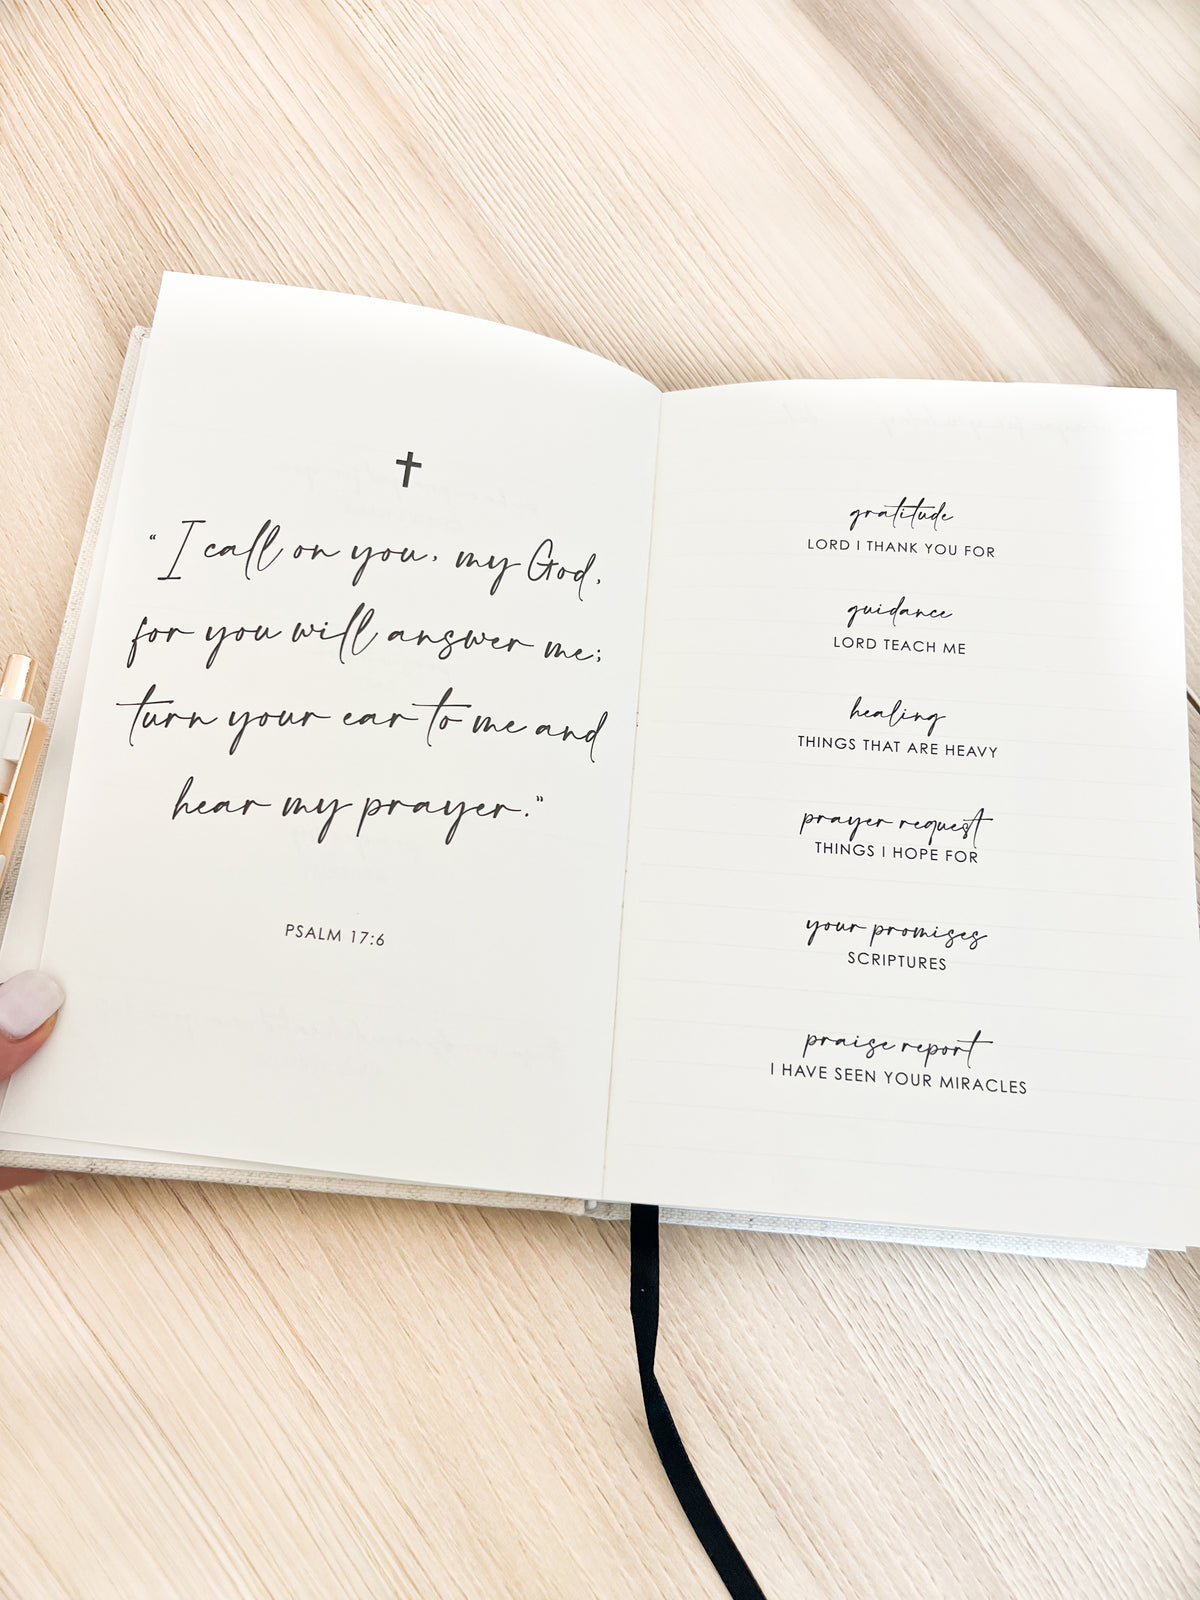 "I call on you, my God,
for you will answer me;
turn your ear to me and
hear my prayer."
PSALM 17:6
gratitude
LORD I THANK YOU FOR
guidance
LORD TEACH ME
healing
THINGS THAT ARE HEAVY
prayer request
THINGS I HOPE FOR
your promises
SCRIPTURES
praise report
I HAVE SEEN YOUR MIRACLES